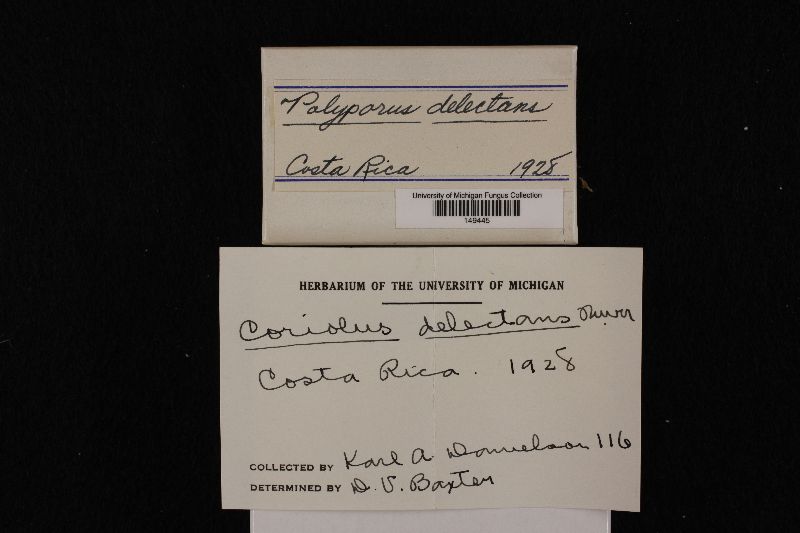 Polyporus delectans
Costa Rica 1928
University of Michigan Fungus Collection
149445
HERBARIUM OF THE UNIVERSITY OF MICHIGAN
Coriolus delectans
Costa Rica. 1928
COLLECTED BY Karl A. Danielson 116
DETERMINED BY D. V. Baxter